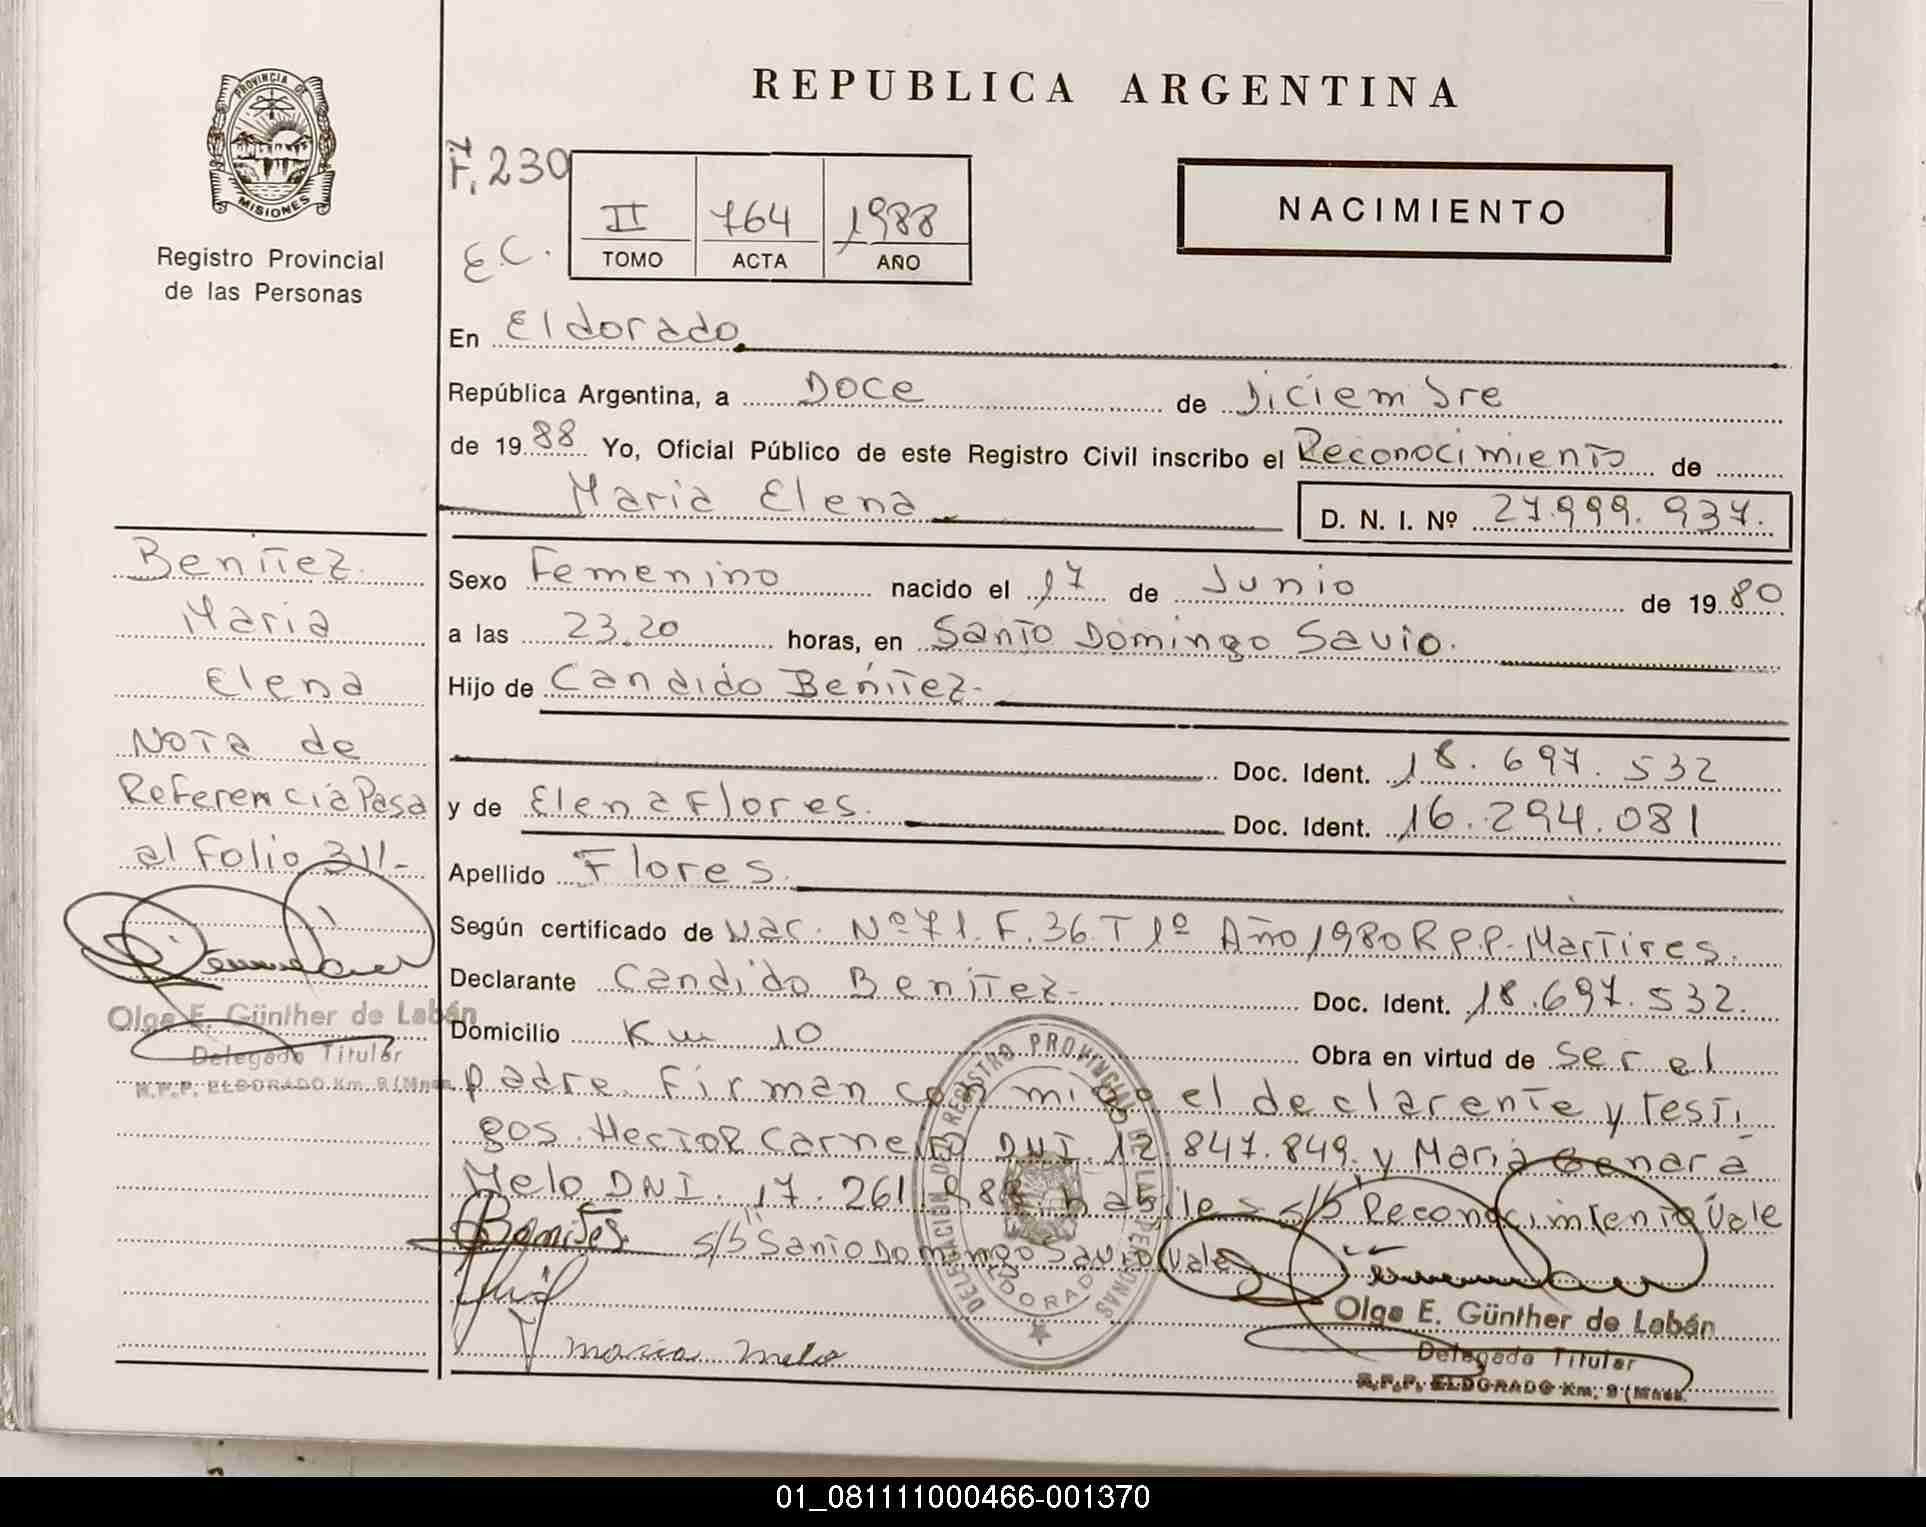 PROVINCIA DE
MISIONES
Registro Provincial
de las Personas
REPUBLICA ARGENTINA
F. 230
E.C.
II 764 1988
TOMO ACTA AÑO
NACIMIENTO
En Eldorado
República Argentina, a Doce de Diciembre
de 1988 Yo, Oficial Público de este Registro Civil inscribo el Reconocimiento de
Maria Elena D. N. I. Nº 27.999.937.
Benitez
Maria
Elena
Nota de
Referencia Pasa
al Folio 311-
Olga E. Günther de Labán
Delegada Titular
R.P.P. ELDORADO Km. 9 (Mnes.
Sexo Femenino nacido el 17 de Junio de 1980
a las 23.20 horas, en Santo Domingo Savio.
Hijo de Candido Benitez-
Doc. Ident. 18.697.532
y de Elena Flores. Doc. Ident. 16.294.081
Apellido Flores.
Según certificado de Nac. Nº 71. F. 36. T 1º Año 1980 R.P.P. Martires.
Declarante Candido Benitez- Doc. Ident. 18.697.532.
Domicilio Km 10 Obra en virtud de Ser el
padre. Firman con migo el declarente y testi
gos. Hector Carneiro DNI. 12.847.849. y Maria Genara
Melo DNI. 17.261.988 habiles s/b Reconocimiento Vale
Benites s/b "Santo Domingo Savio" Vale
maria melo
DELEGACION DEL REGISTRO PROVINCIAL DE LAS PERSONAS
ELDORADO
Olga E. Günther de Labán
Delegada Titular
R.P.P. ELDORADO Km. 9 (Mnes.
01_081111000466-001370